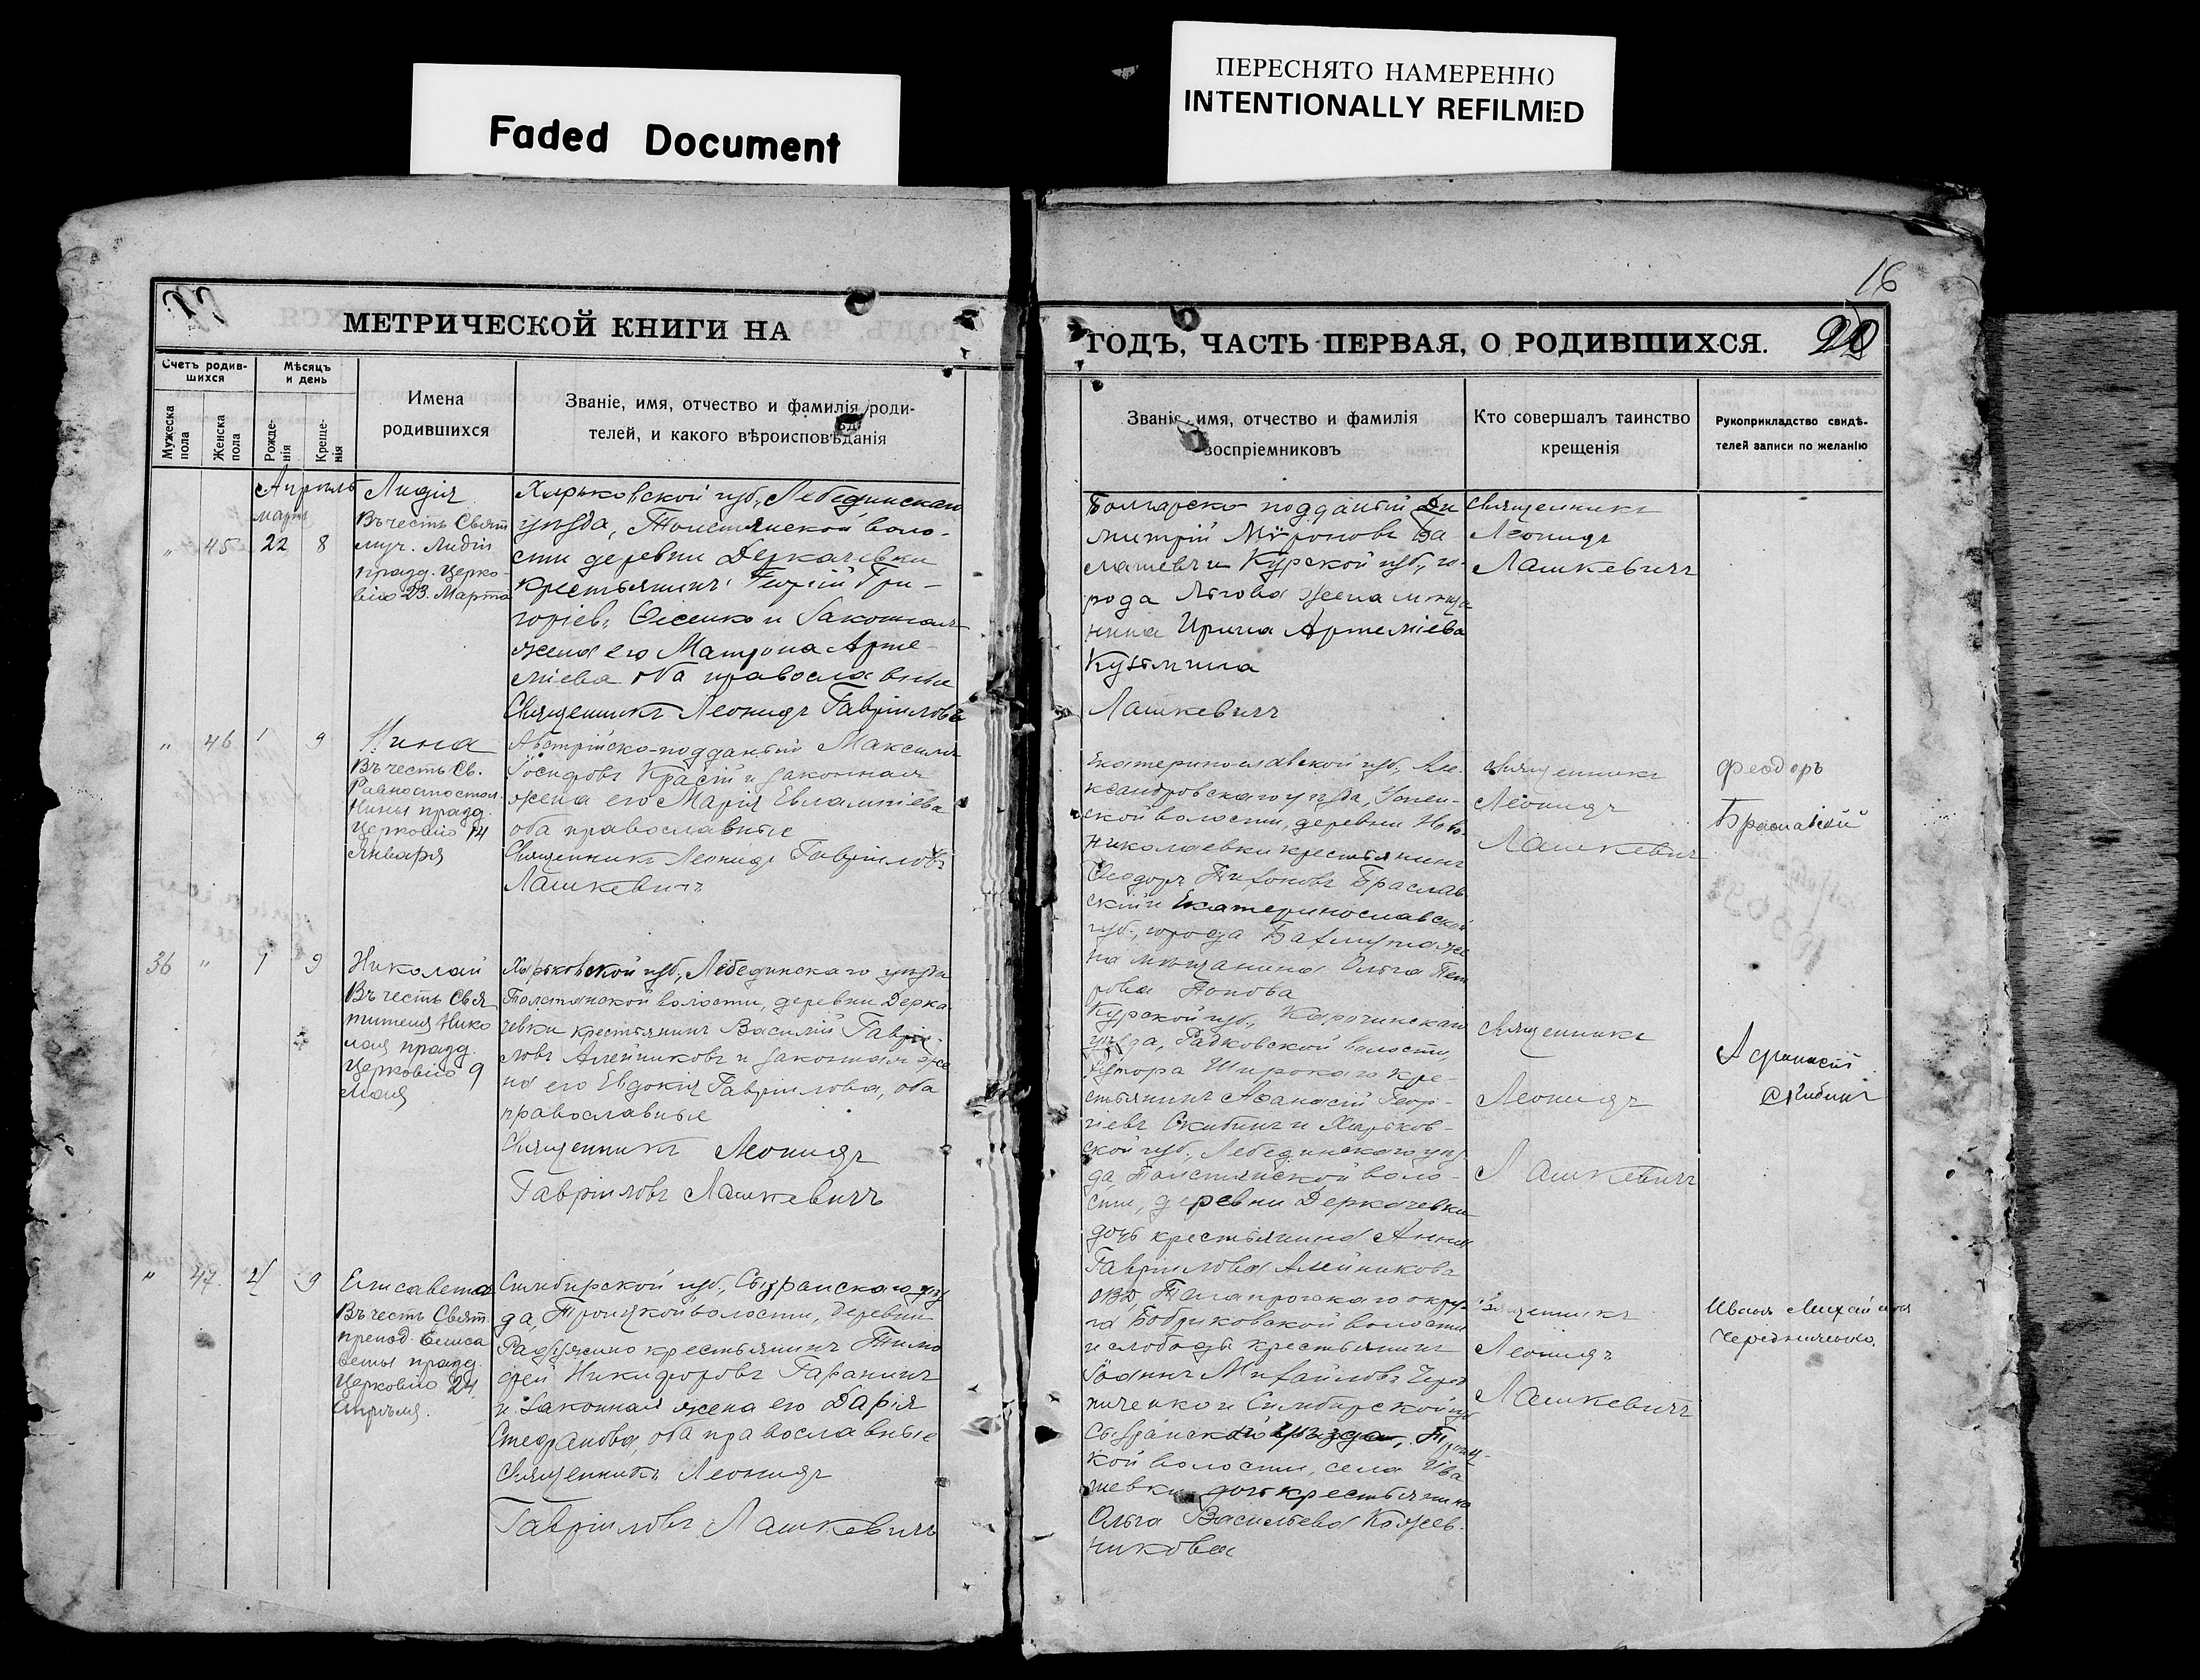 Faded Document
ПЕРЕСНЯТО НАМЕРЕННО
INTENTIONALLY REFILMED
16
МЕТРИЧЕСКОЙ КНИГИ НА
Счетъ родив-
шихся
Мѣсяцъ
и день
Мужеска
пола
Женска
пола
Рожде-
нія
Креще-
нія
Имена
родившихся
Званіе, имя, отчество и фамилія роди-
телей, и какого вѣроисповѣданія
Апрѣль
марта
" 45 22 8
Лидія
Въ честь Свят
муч. Лидіи
празд. Церко-
вію 23. Марта
Харьковской губ., Лебединскаго
уѣзда, Толстянской воло-
сти деревни Деркачевки
крестьянинъ Георгій Гри-
горіевъ Олсенко и законная
жена его Матрона Арте-
міева оба православные
Священникъ Леонидъ Гавріиловъ
" 46 1 9
Нина
Въ честь Св.
Равноапостол.
Нины празд.
Церковію 14
Января
Австрійско-подданный Максимъ
Іосифовъ Красій и законная
жена его Марія Евлампіева
оба православные
Священникъ Леонидъ Гавріиловъ
Лашкевичъ
36 " 1 9
Николай
Въ честь Свя
тителя Нико
лая празд.
Церковію 9
Мая
Харьковской губ., Лебединскаго уѣзда
Толстянской волости, деревни Дерка
чевки крестьянинъ Василій Гаврі-
ловъ Алейниковъ и законная же
на его Евдокія Гавріилова, оба
православные
Священникъ Леонидъ
Гавріиловъ Лашкевичъ
" 47. 4 9
Елисавета
Въ честь Свят.
препод. Елиса
веты празд.
Церковію 24
Апрѣля.
Симбирской губ., Сызранскаго уѣз
да, Троицкой волости, деревни
крестьянинъ Тимо
фей Никифоровъ Гаранинъ
и законная жена его Дарія
Стефанова, оба православные
Священникъ Леонидъ
Гавріиловъ Лашкевичъ
ГОДЪ, ЧАСТЬ ПЕРВАЯ, О РОДИВШИХСЯ.
Званіе, имя, отчество и фамилія
воспріемниковъ
Кто совершалъ таинство
крещенія
Рукоприкладство свидѣ-
телей записи по желанію
Болгарско подданный Ди
митрій Мѵроновъ Ба
и Курской губ., го-
рода Льгова жена мѣща
нина Ирина Артеміева
Кузьмина
Лашкевичъ
Священникъ
Леонидъ
Лашкевичъ
Екатеринославской губ., Але-
ксандровскаго уѣзда, Успен-
ской волости, деревни Ново
николаевки крестьянинъ
Ѳеодоръ Тихоновъ Браслав
скій и Екатеринославской
губ., города Бахмута же
на мѣщанина Ольга Пет
рова Попова
Священникъ
Леонидъ
Лашкевичъ
Феодоръ
Браславскій
Курской губ., Корочинскаго
уѣзда, волости,
хутора Широкаго кре-
стьянинъ Аѳанасій Геор-
гіевъ Скибинъ и Харьков-
ской губ., Лебединскаго уѣз
да, Толстянской воло-
сти, деревни Деркачевки
дочь крестьянина Анна
Гавріилова Алейникова
Священникъ
Леонидъ
Лашкевичъ
Афанасій
Скибинъ
ОВД, Таганрогскаго окру-
га Бобриковской волости
и слободы крестьянинъ
Іоаннъ Михайловъ Черед
ниченко и Симбирской губ
Сызранскаго уѣзда, Троиц-
кой волости, села Ива
шевки дочь крестьянина
Ольга Васильева Кожев-
никова
Священникъ
Леонидъ
Лашкевичъ
Иванъ Михайловъ
Чередниченко.